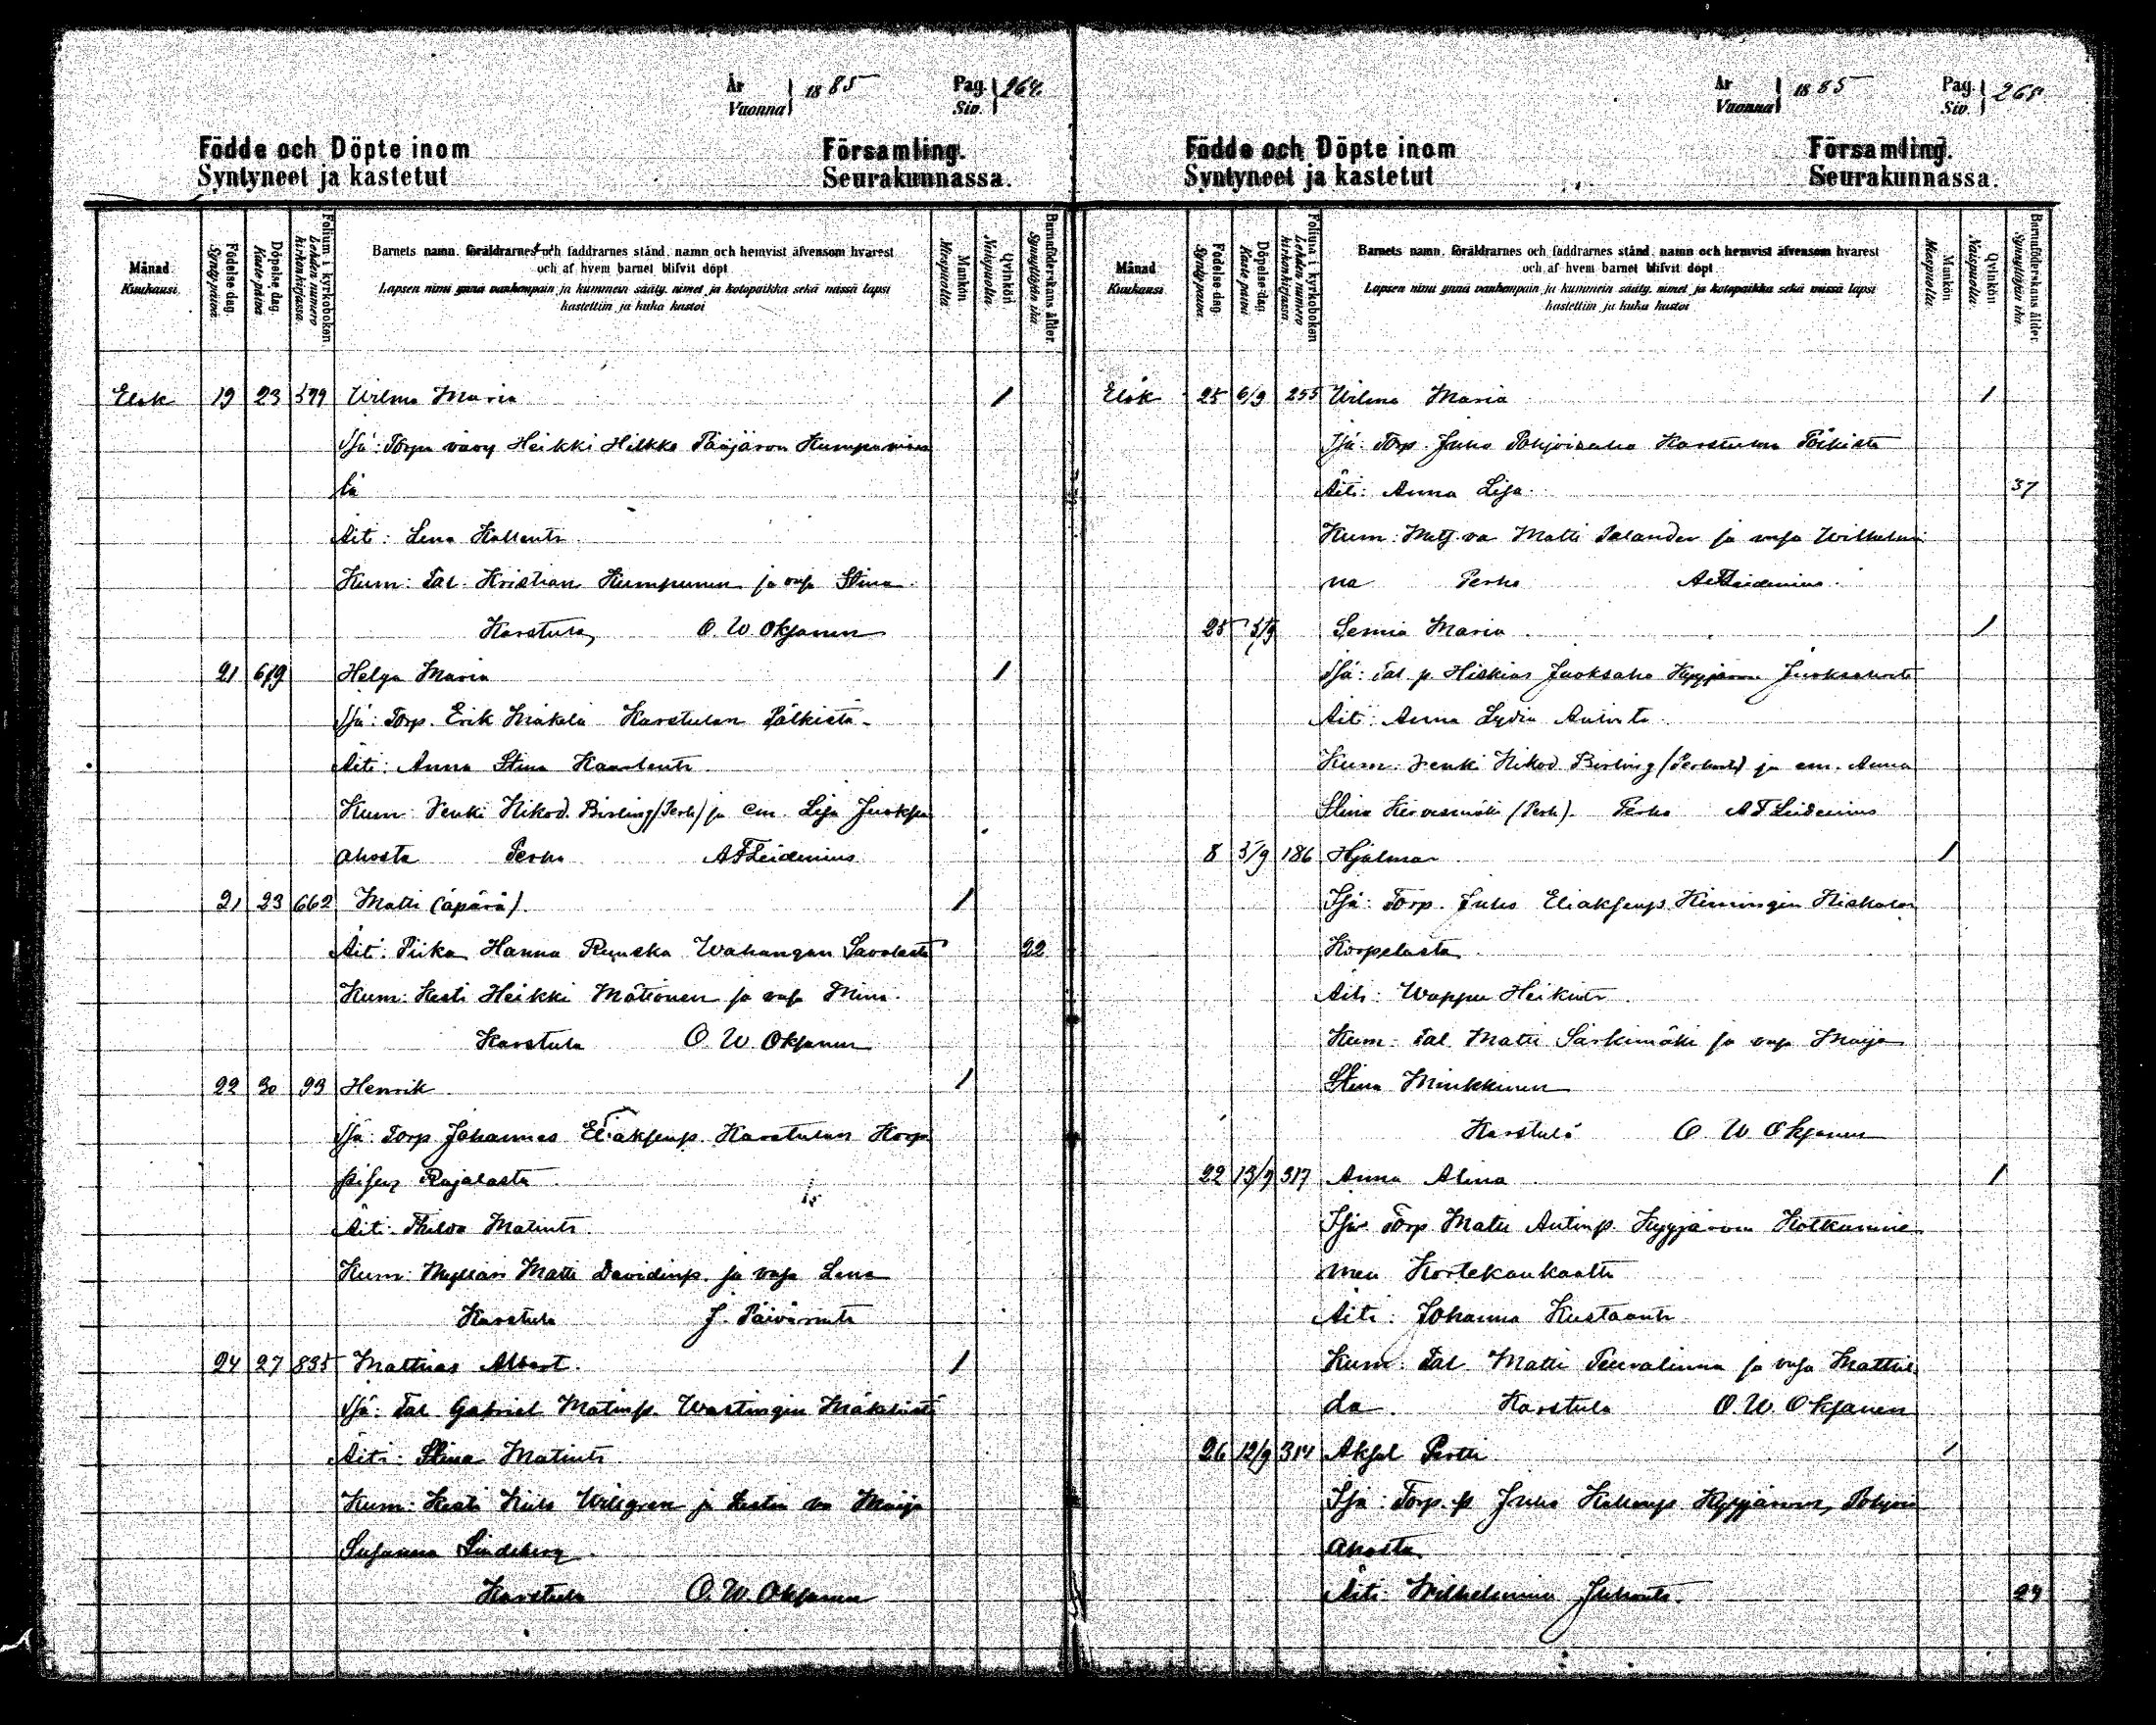 År
Vuonna 1885
Pag.
Siv. 264.
Födde och Döpte inom Församling.
Syntyneet ja kastetut Seurakunnassa.
Månad
Kuukausi
Födelse dag.
Syntypäivä.
Döpelse dag.
Kaste päivä
Folium i kyrkoboken.
Lehden numero kirkonkirjassa.
Barnets namn, föräldrarnes och faddrarnes stånd, namn och hemvist äfvensom hvarest
och af hvem barnet blifvit döpt
Lapsen nimi ynnä vanhempain ja kummein sääty, nimet ja kotopaikka sekä missä lapsi
kastettiin ja kuka kastoi
Mankön
Miespuolta.
Qvinkön
Naispuolta.
Barnaföderskans ålder.
Synnyttäjän ikä.
Elok 19 23 579 Wilma Maria 1
Isä: Torpn vävy Heikki Hilkko Pääjärven
lä
Äiti: Lena Kallentr.
Kum: Tal. Kristian Kumpunen ja vaja Stina
Karstula, O. W. Oksanen
21 6/9 Helga Maria 1
Isä: Torp. Erik Mäkelä Karstulan Pölkistä.
Äiti: Anna Stina Kaarlentr.
Kum: Renki Nikod. Birling (Perh) ja em. Lisa Juoksu
ahosta Perho A F Leidenius
21 23 662 Matti (äpärä). 1
Äiti: Piika Hanna Ruuska Wahangan Savolasta 22
Kum: Kesti Heikki Mätönen ja vaja Mina.
Karstula O. W. Oksanen
22 30 93 Henrik 1
Isä: Torp Johannes Eliaksenp. Karstulan Korp
Rajalasta
Äiti: Matintr.
Kum: Matti Davidinp. ja vaja Lena
Karstula J. Päivärinta
24 27 835 Mattias Albert. 1
Isä: Tal Gabriel Matinp. Wastingin Mäkelästä
Äiti: Stina Matintr.
Kum: Kesti Wilegren ja Kestin va Maija
Susanna Lindeberg
Karstula O. W. Oksanen
År
Vuonna 1885
Pag.
Siv. 265
Födde och Döpte inom Församling.
Syntyneet ja kastetut Seurakunnassa.
Månad
Kuukausi
Födelse dag.
Syntypäivä.
Döpelse dag.
Kaste päivä
Folium i kyrkoboken
Lehden numero kirkonkirjassa
Barnets namn, föräldrarnes och faddrarnes stånd, namn och hemvist äfvensom hvarest
och af hvem barnet blifvit döpt
Lapsen nimi ynnä vanhempain ja kummein sääty, nimet ja kotopaikka sekä missä lapsi
kastettiin ja kuka kastoi
Mankön
Miespuolta.
Qvinkön
Naispuolta.
Barnaföderskans ålder.
Synnyttäjän ikä.
Elok 25 6/9 255 Wilma Maria 1
Isä: Torp. Juho Pohjoisaho Karstulan Pölkistä
Äiti: Anna Lisa. 37
Kum: Matti Salander ja vaja Wilhelmi
na Perho A F Leidenius.
25 5/9 Semia Maria 1
Isä: Tal. p. Hiskias Juoksaho Kyyjärven Juoksaholta
Äiti: Anna Lydia
Kum: Renki Nikod Birling (Perholta) ja em. Anna
Stina Hirvesmäki (Perh). Perho A F Leidenius
8 5/9 186 Hjalmar 1
Isä: Torp. Juho Eliaksenp. Kimingin
Korpelasta
Äiti: Wappu Heikintr.
Kum: Tal Matti Särkimäki ja vaja Maija
Stina Minkkinen
Karstula O W Oksanen
22 13/9 317 Anna Alina 1
Isä: Torp Matti Antinp. Kyyjärven
men Kortekankaalta
Äiti: Johanna Kustaantr.
Kum: Tal Matti Peuralinna ja vaja Mathil
da. Karstula O. W. Oksanen
26 12/9 314 Aksel Pertti 1
Isä: Torp. p. Juho Kallenp. Kyyjärven, Pohjois
ahosta
Äiti: Wilhelmina Juhontr. 29